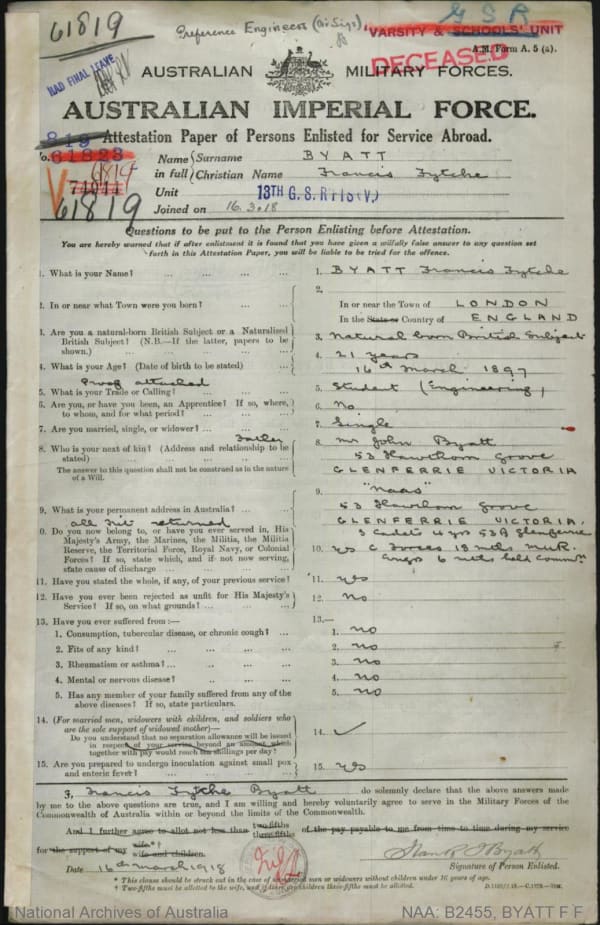 61819
Preference Engineers (Or Sigs),
G S R
VARSITY & SCHOOLS' UNIT
NAD FINAL LEAVE
DECEASED
A.M. Form A. 5 (a).
AUSTRALIAN MILITARY FORCES.
AUSTRALIAN IMPERIAL FORCE.
819 Attestation Paper of Persons Enlisted for Service Abroad.
No. 61823
61819
Name in full { Surname BYATT
Christian Name Francis Fytche
Unit 13TH G. S. RFTS (V.)
Joined on 16.3.18
Questions to be put to the Person Enlisting before Attestation.
You are hereby warned that if after enlistment it is found that you have given a wilfully false answer to any question set
forth in this Attestation Paper, you will be liable to be tried for the offence.
1. What is your Name? ... ... ... 1. BYATT Francis Fytche
2. In or near what Town were you born? ... ... 2. In or near the Town of LONDON
In the State or Country of ENGLAND
3. Are you a natural-born British Subject or a Naturalised
British Subject? (N.B.—If the latter, papers to be
shown.) ... ... 3. Natural born British Subject
4. What is your Age? (Date of birth to be stated) ... 4. 21 years
16th March 1897
Proof attached
5. What is your Trade or Calling? ... ... 5. Student (Engineering)
6. Are you, or have you been, an Apprentice? If so, where,
to whom, and for what period? ... ... 6. No
7. Are you married, single, or widower? ... 7. Single
Father
8. Who is your next of kin? (Address and relationship to be
stated) 8. Mr John Byatt
53 Hawthorn Grove
GLENFERRIE VICTORIA
The answer to this question shall not be construed as in the nature
of a Will.
9. What is your permanent address in Australia? ... 9. "Naas"
53 Hawthorn Grove
GLENFERRIE VICTORIA.
all kit returned
0. Do you now belong to, or have you ever served in, His
Majesty's Army, the Marines, the Militia, the Militia
Reserve, the Territorial Force, Royal Navy, or Colonial
Forces? If so, state which, and if not now serving,
state cause of discharge ... ...
S Cadets 4 yrs 53A Glenferrie
10. yes C Forces 18 mths M.U.R.
Engrs 6 mths held Commn
11. Have you stated the whole, if any, of your previous service? 11. yes
12. Have you ever been rejected as unfit for His Majesty's
Service? If so, on what grounds? ... 12. No
13. Have you ever suffered from :— 13.—
1. Consumption, tubercular disease, or chronic cough? ... 1. no
2. Fits of any kind? ... ... 2. no
3. Rheumatism or asthma? ... ... 3. no
4. Mental or nervous disease? ... ... 4. no
5. Has any member of your family suffered from any of the
above diseases? If so, state particulars. 5. no
14. (For married men, widowers with children, and soldiers who
are the sole support of widowed mother)—
Do you understand that no separation allowance will be issued
in respect of your service beyond an amount which
together with pay would reach ten shillings per day? 14. ✓
15. Are you prepared to undergo inoculation against small pox
and enteric fever? ... ... 15. yes
I, Francis Fytche Byatt do solemnly declare that the above answers made
by me to the above questions are true, and I am willing and hereby voluntarily agree to serve in the Military Forces of the
Commonwealth of Australia within or beyond the limits of the Commonwealth.
And I further agree to allot not less than two-fifths three-fifths of the pay payable to me from time to time during my service
for the support of my wife*† wife and children.
Date 16th March 1918
Signature of Person Enlisted.
* This clause should be struck out in the case of unmarried men or widowers without children under 16 years of age.
† Two-fifths must be allotted to the wife, and if there are children three-fifths must be allotted.
National Archives of Australia
NAA: B2455, BYATT F F